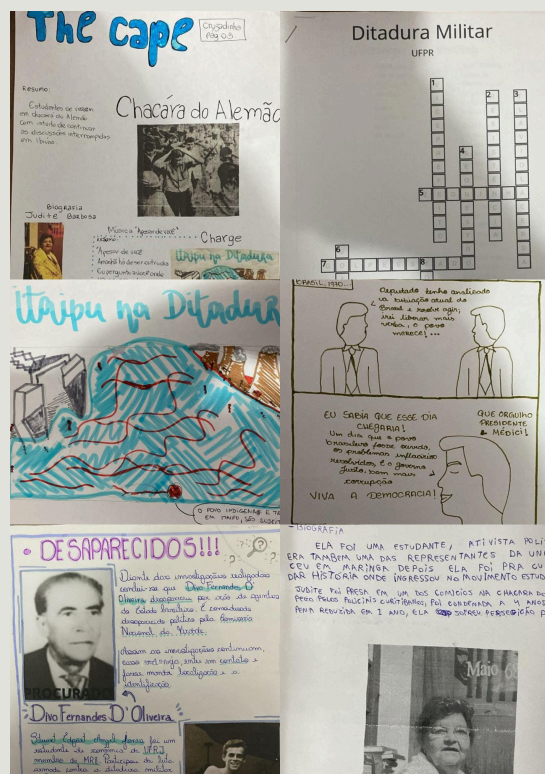 The cape
Cruzadinha
Pág 03
Resumo:
Estudantes se reúnem
em chácara do Alemão
com intuito de continuar
as discussões interrompidas
em Ibiúna
Chacára do Alemão
Biografia
Judite Barbosa
Música "Apesar de você"
Charge
Apesar de você
Amanhã há de ser outro dia
Eu pergunto a você onde
Itaipu na Ditadura
Ditadura Militar
UFPR
1
2
3
4
5
6
7
8
Itaipu na Ditadura
O POVO INDÍGENA E TA
EM ITAIPU, SÃO SUSPEIT
BRASIL, 1970...
Deputado tenho analisado
a situação atual do
Brasil e resolvi agir,
irei liberar mais
verba, o povo
merece!...
EU SABIA QUE ESSE DIA
CHEGARIA!
Um dia que o povo
brasileiro fosse ouvido,
os problemas inflacários
resolvidos, E o governo
justo, sem mais
corrupção
VIVA A DEMOCRACIA!
QUE ORGULHO
PRESIDENTE
MÉDICI!
DESAPARECIDOS!!!
Diante das investigações realizadas
conclui-se que Divo Fernandes D'
Oliveira desapareceu por ação de agentes
do Estado brasileiro. É considerado
desaparecido político pela Comissão
Nacional da Verdade.
Assim as investigações continuam,
caso reconheça, entre em contato e
possa mostrar localização e a
identificação.
PROCURADO
Divo Fernandes D'Oliveira
Stuart Edgart Angel Jones foi um
estudante de economia da UFRJ
membro do MR8. Participou da luta
armada contra a ditadura militar
- BIOGRAFIA
ELA FOI UMA ESTUDANTE, ATIVISTA POLI
ERA TAMBEM UMA DAS REPRESENTANTES DA UN
CEU EM MARINGA DEPOIS ELA FOI PRA CU
DAR HISTÓRIA ONDE INGRESSOU NO MOVIMENTO ESTUD
JUDITE FOI PRESA EM UM DOS COMÍCIOS NA CHACARA DO
PEGO PELOS POLICIAIS CURITIBANOS, FOI CONDENADA A 4 ANOS
PENA REDUZIDA EM 1 ANO, ELA SOFREU PERSEGIÇÃO P
Maio 6